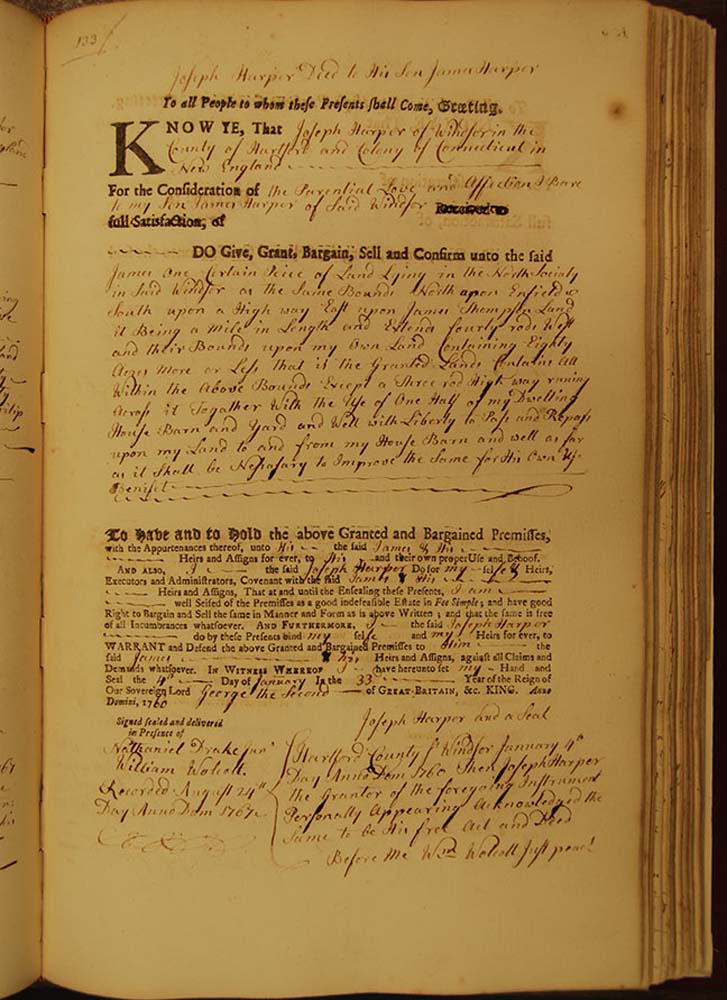 133
Joseph Harper Deed to His Son James Harper
To all People to whom these Presents shall Come, Greeting.
KNOW YE, That Joseph Harper of Windsor in the
County of Hartford and Colony of Connecticut in
New England
For the Consideration of the Parential Love and Affection I Bare
to my Son James Harper of Said Windsor Received to
full Satisfaction, of
DO Give, Grant, Bargain, Sell and Confirm unto the said
James One Certain Peice of Land Lying in the North Society
in Said Windsor as the Same Bounds North upon Enfield &
South upon a High way East upon James Thompson Land
it Being a Mile in Length and Extends fourty rods West
and their Bounds upon my Own Land Containing Eighty
Acres More or Less that is the Granted Lands Contains All
Within the Above Bounds Except a Three rod High way runing
Across it Togather With the Use of One Half of my Dwelling
House Barn and Yard and Well with Liberty to Pass and Repass
upon my Land to and from my House Barn and well as far
as it Shall be Nessasary to Improve the Same for His Own Use
Benifet
To Have and to Hold the above Granted and Bargained Premisses,
with the Appurtenances thereof, unto His the said James & His
Heirs and Assigns for ever, to His and their own proper Use and Behoof.
AND ALSO, I the said Joseph Harper Do for my selfe & Heirs,
Executors and Administrators, Covenant with the said James & His
Heirs and Assigns, That at and until the Ensealing these Presents, I am
well Seised of the Premisses as a good indefeasible Estate in Fee Simple; and have good
Right to Bargain and Sell the same in Manner and Form as is above Written; and that the same is free
of all Incumbrances whatsoever. AND FURTHERMORE, I the said Joseph Harper
do by these Presents bind my selfe and my Heirs for ever, to
WARRANT and Defend the above Granted and Bargained Premisses to Him the
said James & his Heirs and Assigns, against all Claims and
Demands whatsoever. IN WITNESS WHEREOF I have hereunto set my Hand and
Seal the 4th Day of January In the 33 Year of the Reign of
Our Sovereign Lord George the Second of GREAT-BRITAIN, &c. KING. Anno
Domini, 1760
Joseph Harper and a Seal
Signed sealed and delivered
in Presence of
Nathaniel Drake Junr
William Wolcott
Recorded August 24th
Day Anno Dom 1767
Hartford County ss Windsor January 4th
Day Anno Dom 1760 Then Joseph Harper
the Grantor of the foregoing Instrument
Personally Appearing Acknowledged the
Same to be His free Act and Deed
Before Me Wm Wolcott Just peace